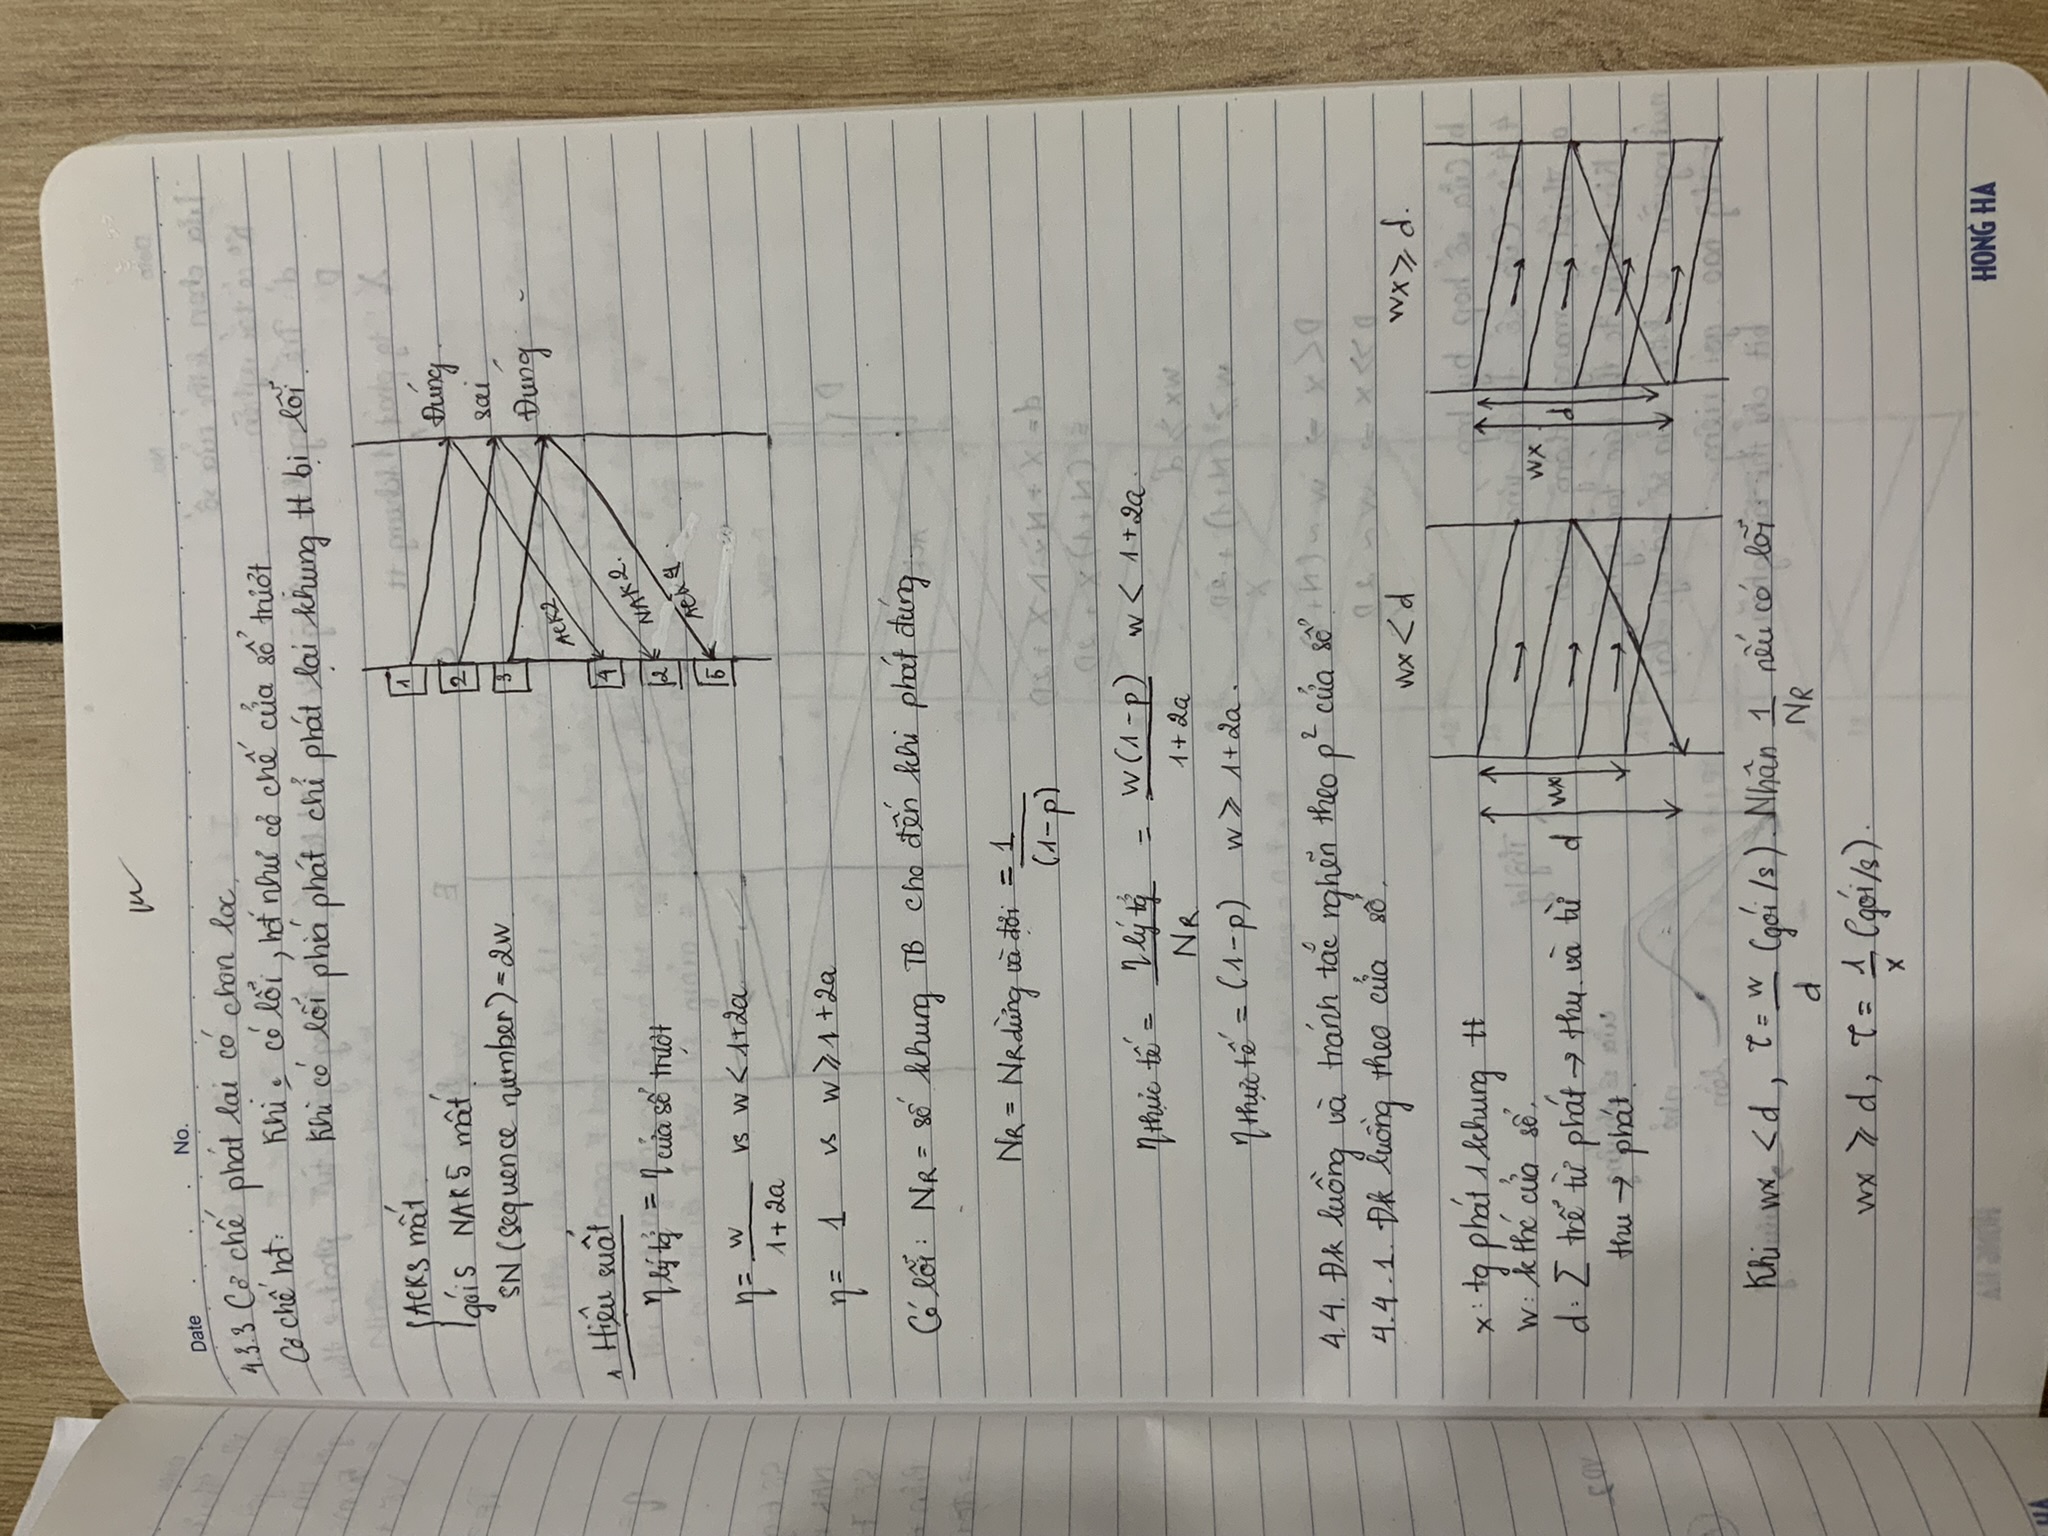 Date No.
4.3.3 Cơ chế phát lại có chọn lọc.
Cơ chế hđ: Khi có lỗi, hđ như cơ chế cửa sổ trượt
Khi có lỗi phiá phát chỉ phát lại khung tt bị lỗi.
ACK3 mất
gói 5 NAK5 mất
SN (sequence number) = 2w
1 Đúng.
2 sai
3 Đúng
ACK2
4
NAK2.
2
ACK4
5
1 Hiệu suất
η lý tg = η cửa sổ trượt
η = w/(1+2a) vs w < 1+2a
η = 1 vs w ⩾ 1+2a
Có lỗi: NR = số khung TB cho đến khi phát đúng
NR = NR dừng và đợi = 1/(1-p)
η thực tế = η lý tg/NR = w(1-p)/(1+2a) w < 1+2a.
η thực tế = (1-p) w ⩾ 1+2a.
4.4. Đk luồng và tránh tắc nghẽn theo p² cửa sổ
4.4.1. Đk luồng theo cửa sổ.
wx < d wx ⩾ d.
x: tg phát 1 khung tt
w: k thć cửa sổ.
d: Σ trễ từ phát → thu và từ
thu → phát.
d wx wx d
Khi wx < d, τ = w/d (gói/s). Nhân 1/NR nếu có lỗi
wx ⩾ d, τ = 1/x (gói/s).
HONG HA